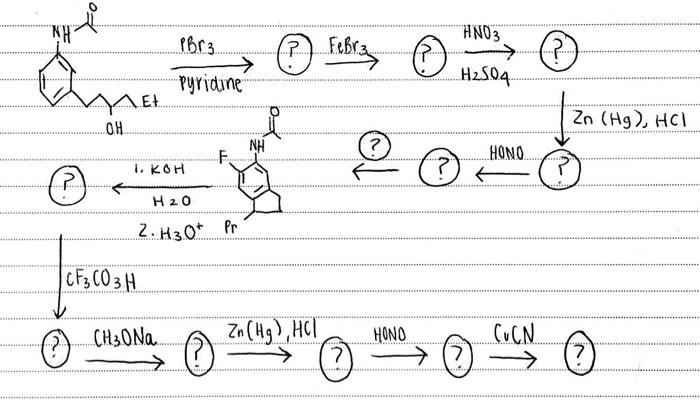 O
NH
Et
OH
PBr3
pyridine
?
FeBr3
?
HNO3
H2SO4
?
Zn (Hg), HCl
?
HONO
?
?
O
NH
F
Pr
1. KOH
H2O
2. H3O+
?
CF3CO3H
?
CH3ONa
?
Zn(Hg), HCl
?
HONO
?
CuCN
?